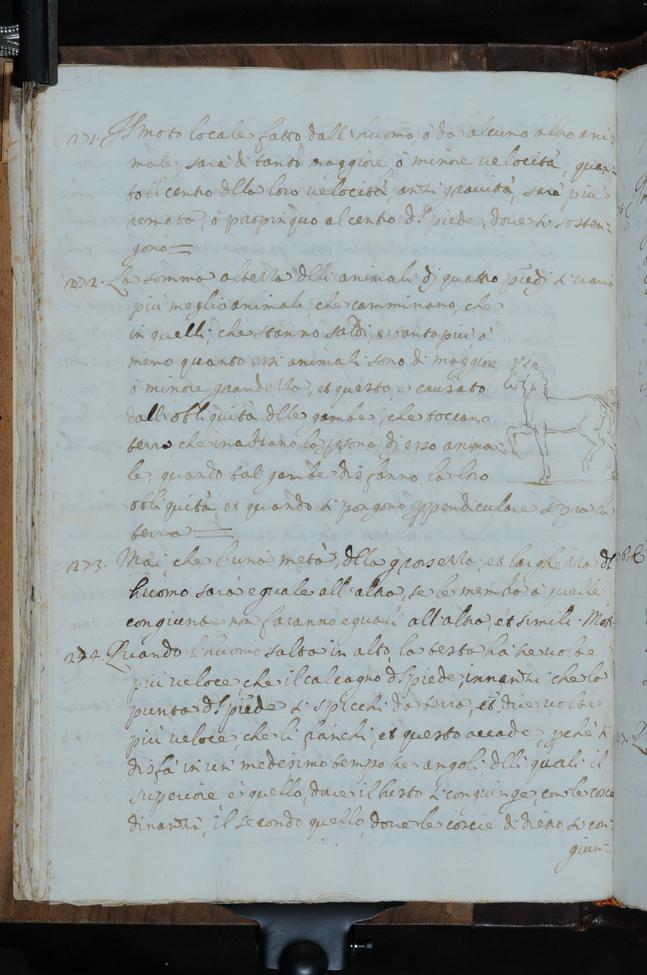 271. Il moto locale fatto dall'huomo, ò da alcuno altro ani-
male, sarà di tanto maggiore, ò minore velocità, quan-
to il centro della loro velocità, anzi gravità, sarà più
remoto, ò propinquo al centro del piede, dove si sosten-
gono =
272. La somma altezza delli animali di quattro piedi si varia
più meglio animali che camminano, che
in quelli, che stanno saldi, e tanto più ò
meno quanto essi animali sono di maggiore
ò minore grandezza, et questo, e causato
dall'obliquità delle gambe, che toccano
terra, che inalzano la persona di esso anima-
le, quando tal gambe disfanno la loro
obliquità et quando si pongono perpendiculare sopra la
terra =
273. Mai, che l'una metà della grossezza, et larghezza del
huomo sarà eguale all'altra, se le membra à quelle
congiunte non faranno eguali all'altra, et simili Moti
274. Quando l'huomo salta in alto, la testa hà tre volte
più veloce che il calcagno del piede innanzi che la
punta del piede si spicchi da terra, et due volte
più veloce, che li fianchi, et questo accade, perchè si
disfà in un' medesimo tempo tre angoli delli quali il
superiore, è quello, dove il busto si congiunge, con le coscie
dinanzi, il secondo quello, dove le coscie di dietro si con-
giun-